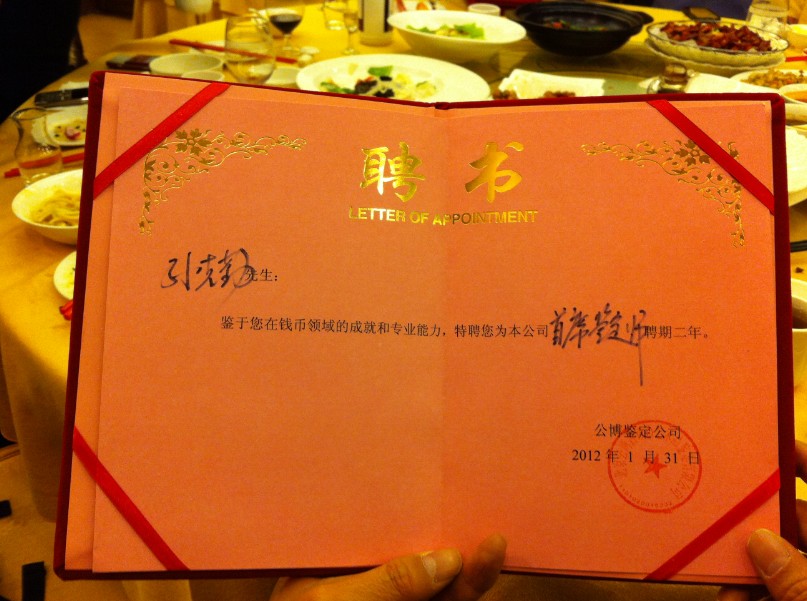 聘书
LETTER OF APPOINTMENT
孙克勤先生：
鉴于您在钱币领域的成就和专业能力，特聘您为本公司首席鉴定师聘期二年。
公博鉴定公司
2012 年 1 月 31 日